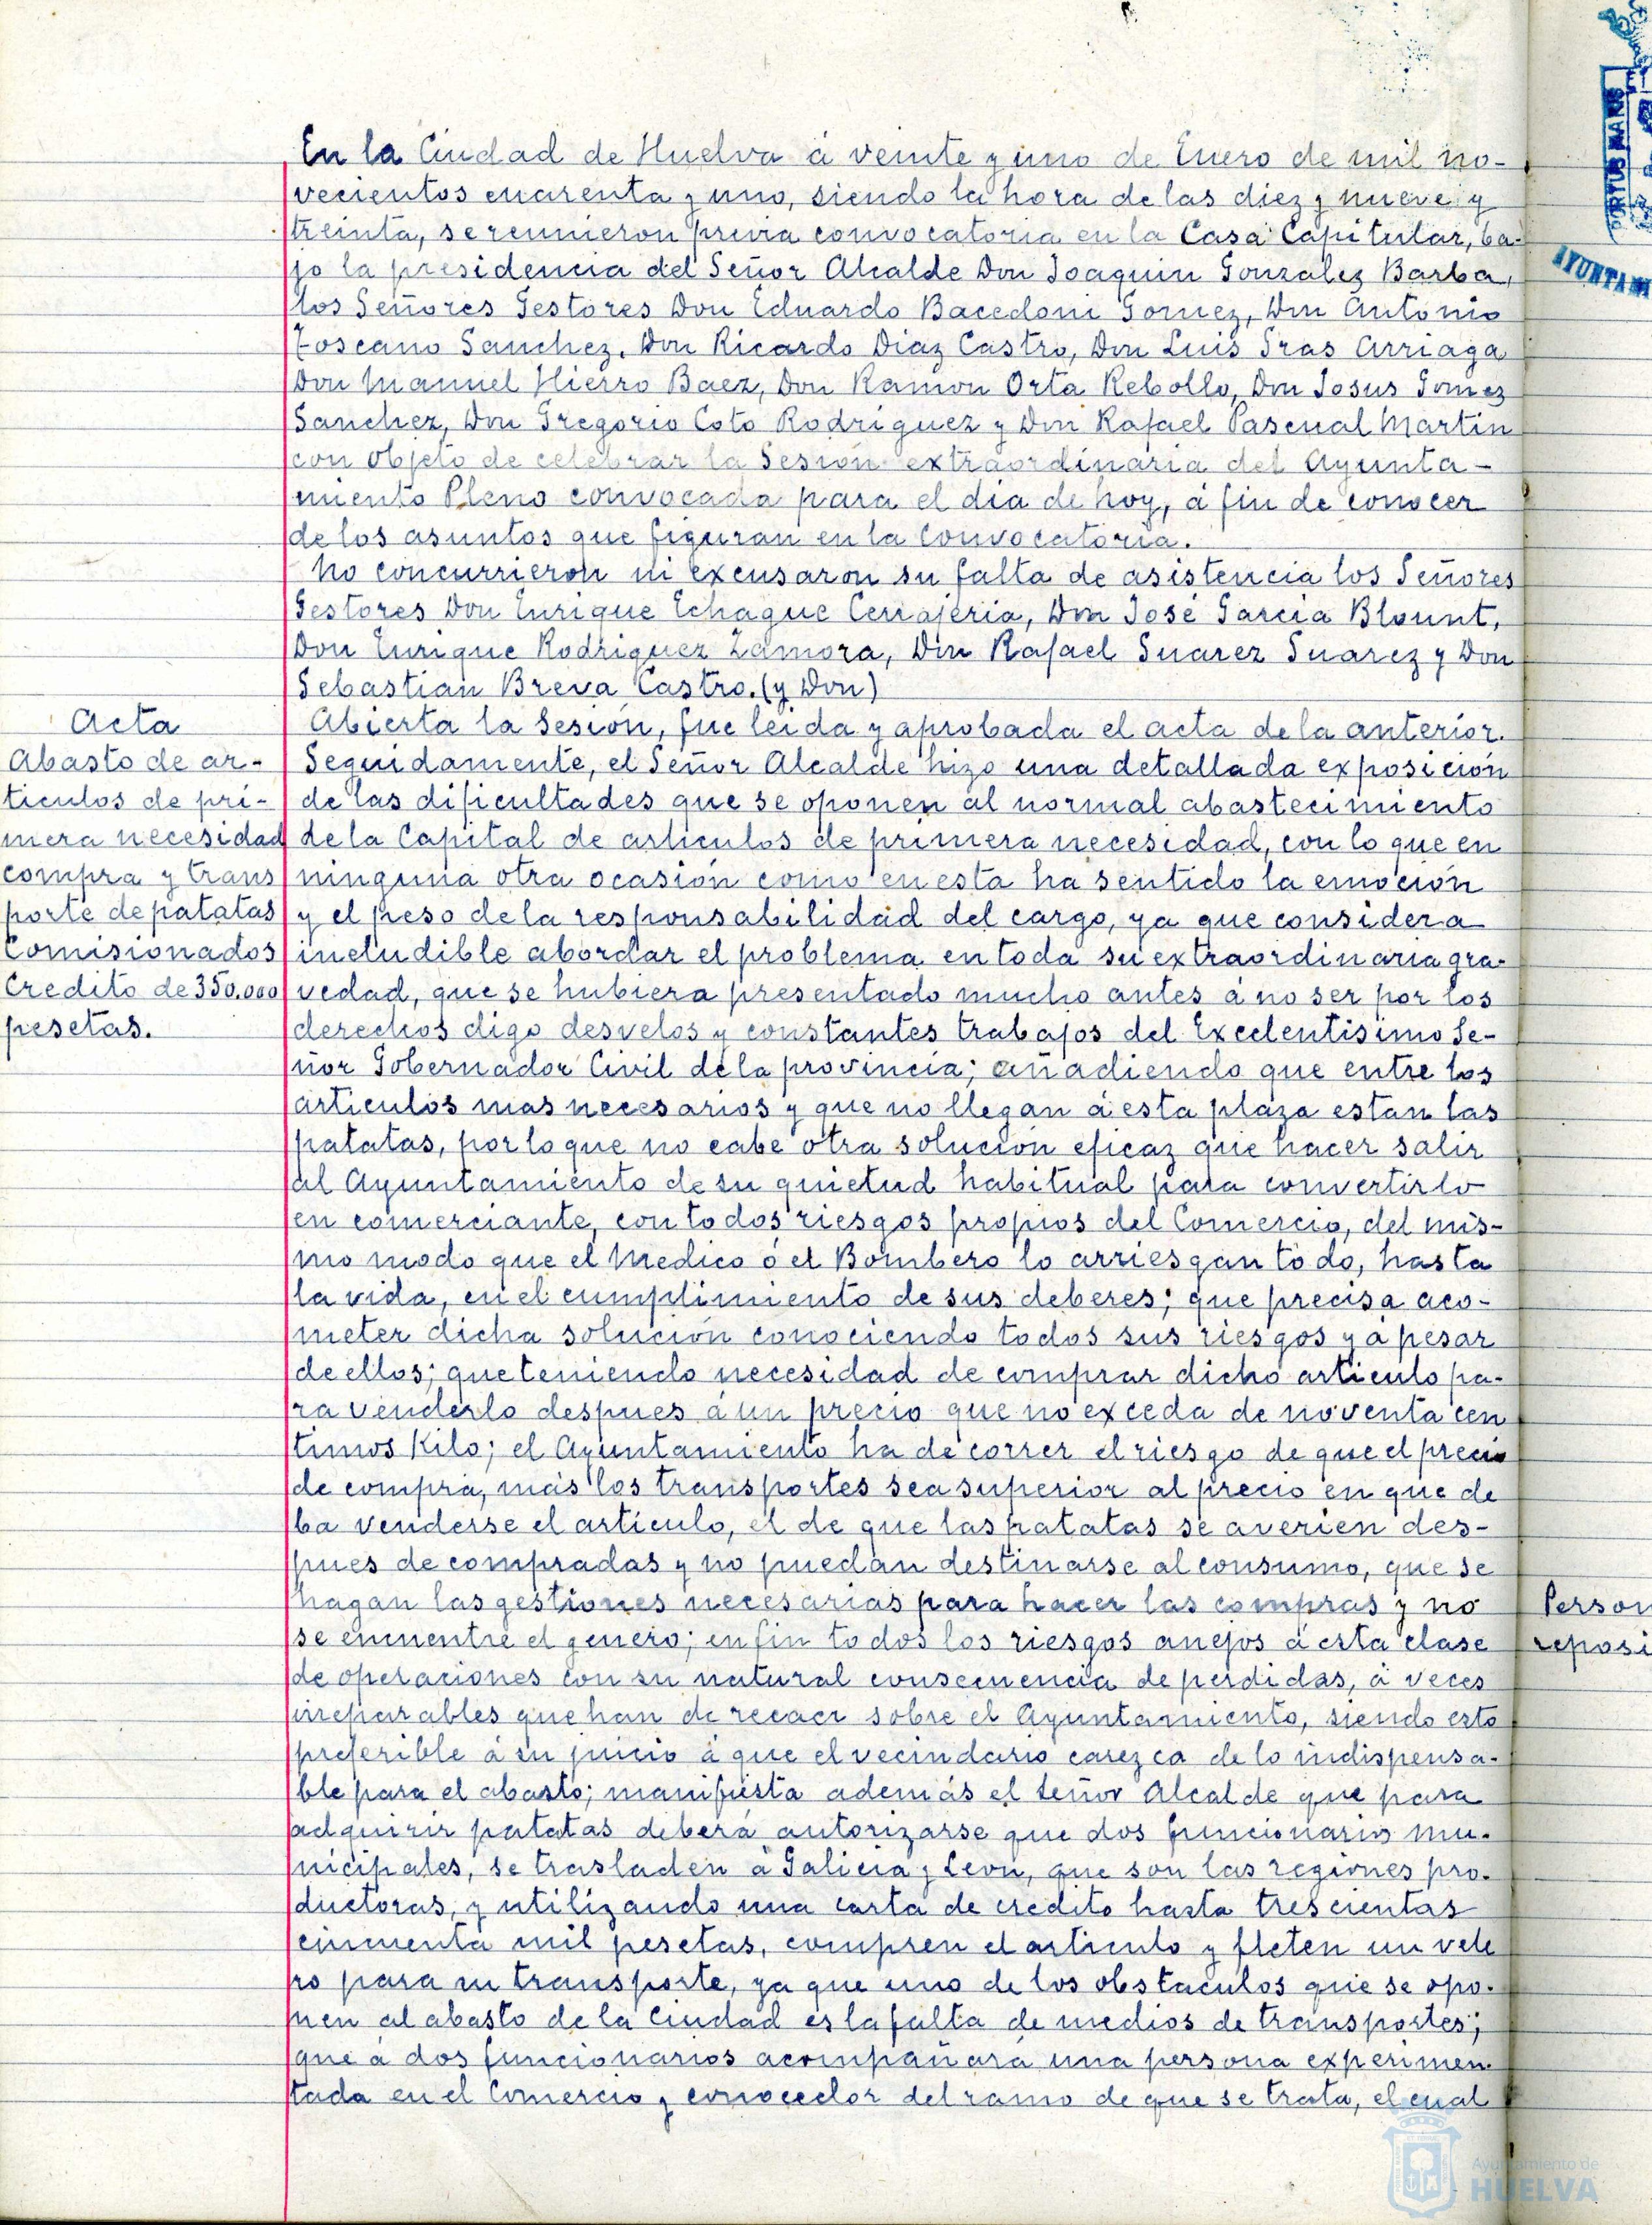 En la Ciudad de Huelva á veinte y uno de Enero de mil no-
vecientos cuarenta y uno, siendo la hora de las diez y nueve y
treinta, se reunieron previa convocatoria en la Casa Capitular, ba-
jo la presidencia del Señor Alcalde Don Joaquin Gonzalez Barba,
los Señores Gestores Don Eduardo Bacedoni Gomez, Don Antonio
Toscano Sanchez, Don Ricardo Diaz Castro, Don Luis Tras Arriaga
Don Manuel Hierro Baez, Don Ramon Orta Rebollo, Don Josus Gomez
Sanchez, Don Gregorio Coto Rodriguez y Don Rafael Pascual Martin
con objeto de celebrar la Sesión extraordinaria del Ayunta-
miento Pleno convocada para el dia de hoy, á fin de conocer
de los asuntos que figuran en la Convocatoria.
No concurrieron ni excusaron su falta de asistencia los Señores
Gestores Don Enrique Echague Cerrajeria, Don José Garcia Blount,
Don Enrique Rodriguez Zamora, Don Rafael Suarez Suarez y Don
Sebastian Breva Castro. (y Don)
Acta
Abasto de ar-
ticulos de pri-
mera necesidad
compra y trans
porte de patatas
Comisionados
Credito de 350.000
pesetas.
Abierta la Sesión, fue leida y aprobada el acta de la anterior.
Seguidamente, el Señor Alcalde hizo una detallada exposición
de las dificultades que se oponen al normal abastecimiento
de la Capital de articulos de primera necesidad, con lo que en
ninguna otra ocasión como en esta ha sentido la emoción
y el peso de la responsabilidad del cargo, ya que considera
ineludible abordar el problema en toda su extraordinaria gra-
vedad, que se hubiera presentado mucho antes á no ser por los
derechos digo desvelos y constantes trabajos del Excelentisimo Se-
ñor Gobernador Civil de la provincia; añadiendo que entre los
articulos mas necesarios y que no llegan á esta plaza estan las
patatas, por lo que no cabe otra solución eficaz que hacer salir
al Ayuntamiento de su quietud habitual para convertirlo
en comerciante, con todos riesgos propios del Comercio, del mis-
mo modo que el Medico ó el Bombero lo arriesgan todo, hasta
la vida, en el cumplimiento de sus deberes; que precisa aco-
meter dicha solución conociendo todos sus riesgos y á pesar
de ellos; que teniendo necesidad de comprar dicho articulo pa-
ra venderlo despues á un precio que no exceda de noventa cen
timos Kilo; el Ayuntamiento ha de correr el riesgo de que el precio
de compra, más los transportes sea superior al precio en que de
ba venderse el articulo, el de que las patatas se averien des-
pues de compradas y no puedan destinarse al consumo, que se
hagan las gestiones necesarias para hacer las compras y no
se encuentre el genero; en fin todos los riesgos anejos á esta clase
de operaciones con su natural consecuencia de perdidas, á veces
irreparables que han de recaer sobre el Ayuntamiento, siendo esto
preferible á su juicio á que el vecindario carezca de lo indispensa-
ble para el abasto; manifiesta además el Señor Alcalde que para
adquirir patatas deberá autorizarse que dos funcionarios mu-
nicipales, se trasladen á Galicia y Leon, que son las regiones pro-
ductoras, y utilizando una carta de credito hasta trescientas
cincuenta mil pesetas, compren el articulo y fleten un vele
ro para su transporte, ya que uno de los obstaculos que se opo-
nen al abasto de la Ciudad es la falta de medios de transportes;
que á dos funcionarios acompañará una persona experimen-
tada en el Comercio y conocedor del ramo de que se trata, el cual
PORTUS MARIS
AYUNTAM
Person
reposi
Ayuntamiento de
HUELVA